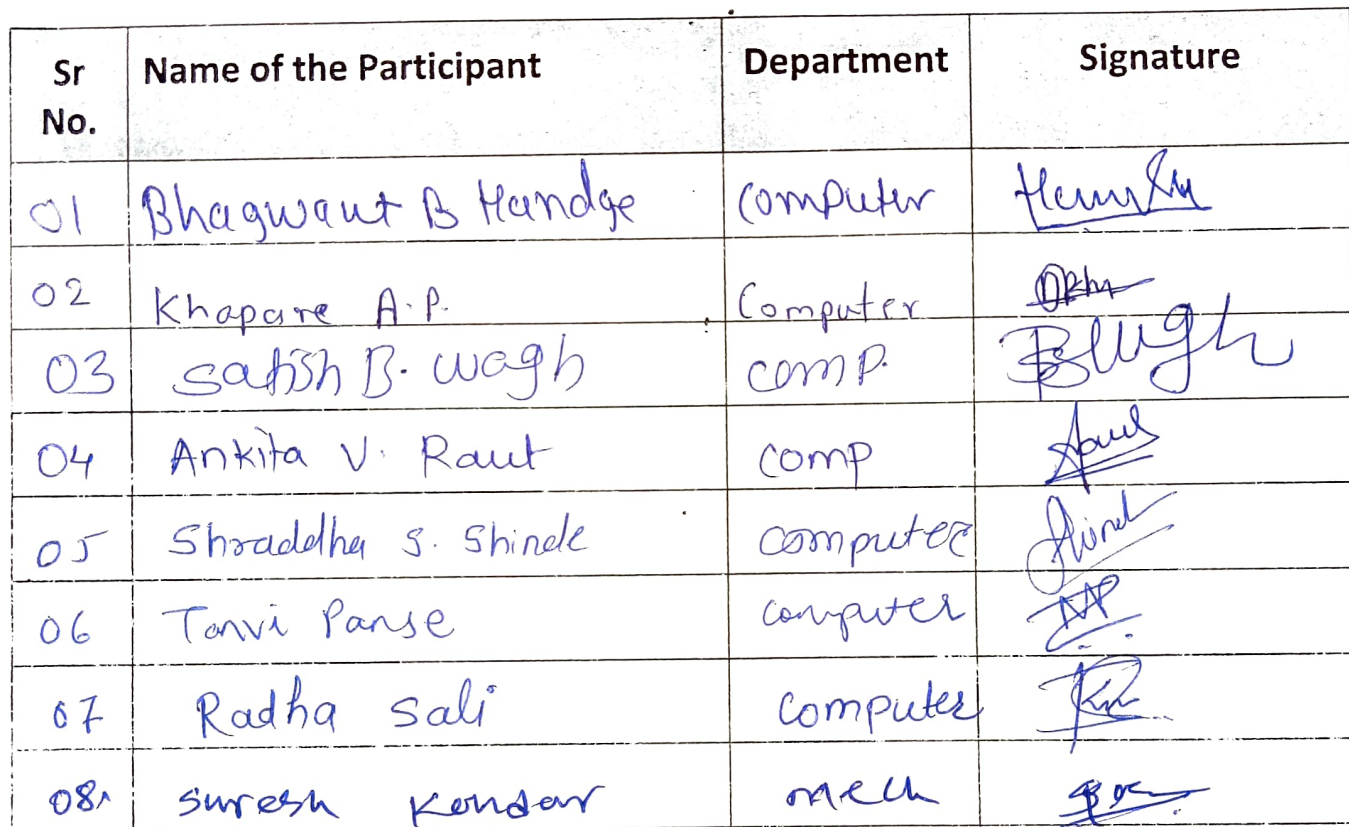 Sr No. Name of the Participant Department Signature
01 Bhagwant B Handge Computer
02 Khapare A.P. Computer
03 Satish B. Wagh comp.
04 Ankita V. Raut comp
05 Shraddha S. Shinde computer
06 Tanvi Panse computer
07 Radha Sali Computer
08. Suresh Kondar mech